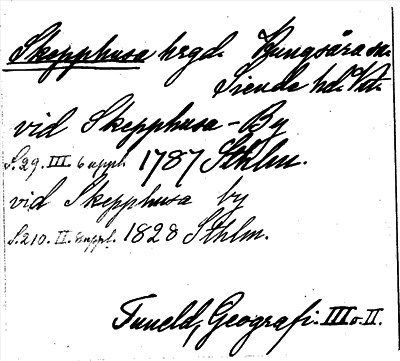 Skepphusa hrgd. Kungsåra sn.
Siende hd. Vtl.
vid Skepphusa-By
S.29. III. 6 uppl. 1787 Sthlm.
vid Skepphusa by
S.210. II. 8 uppl. 1828 Sthlm.
Tuneld, Geografi. III o. II.